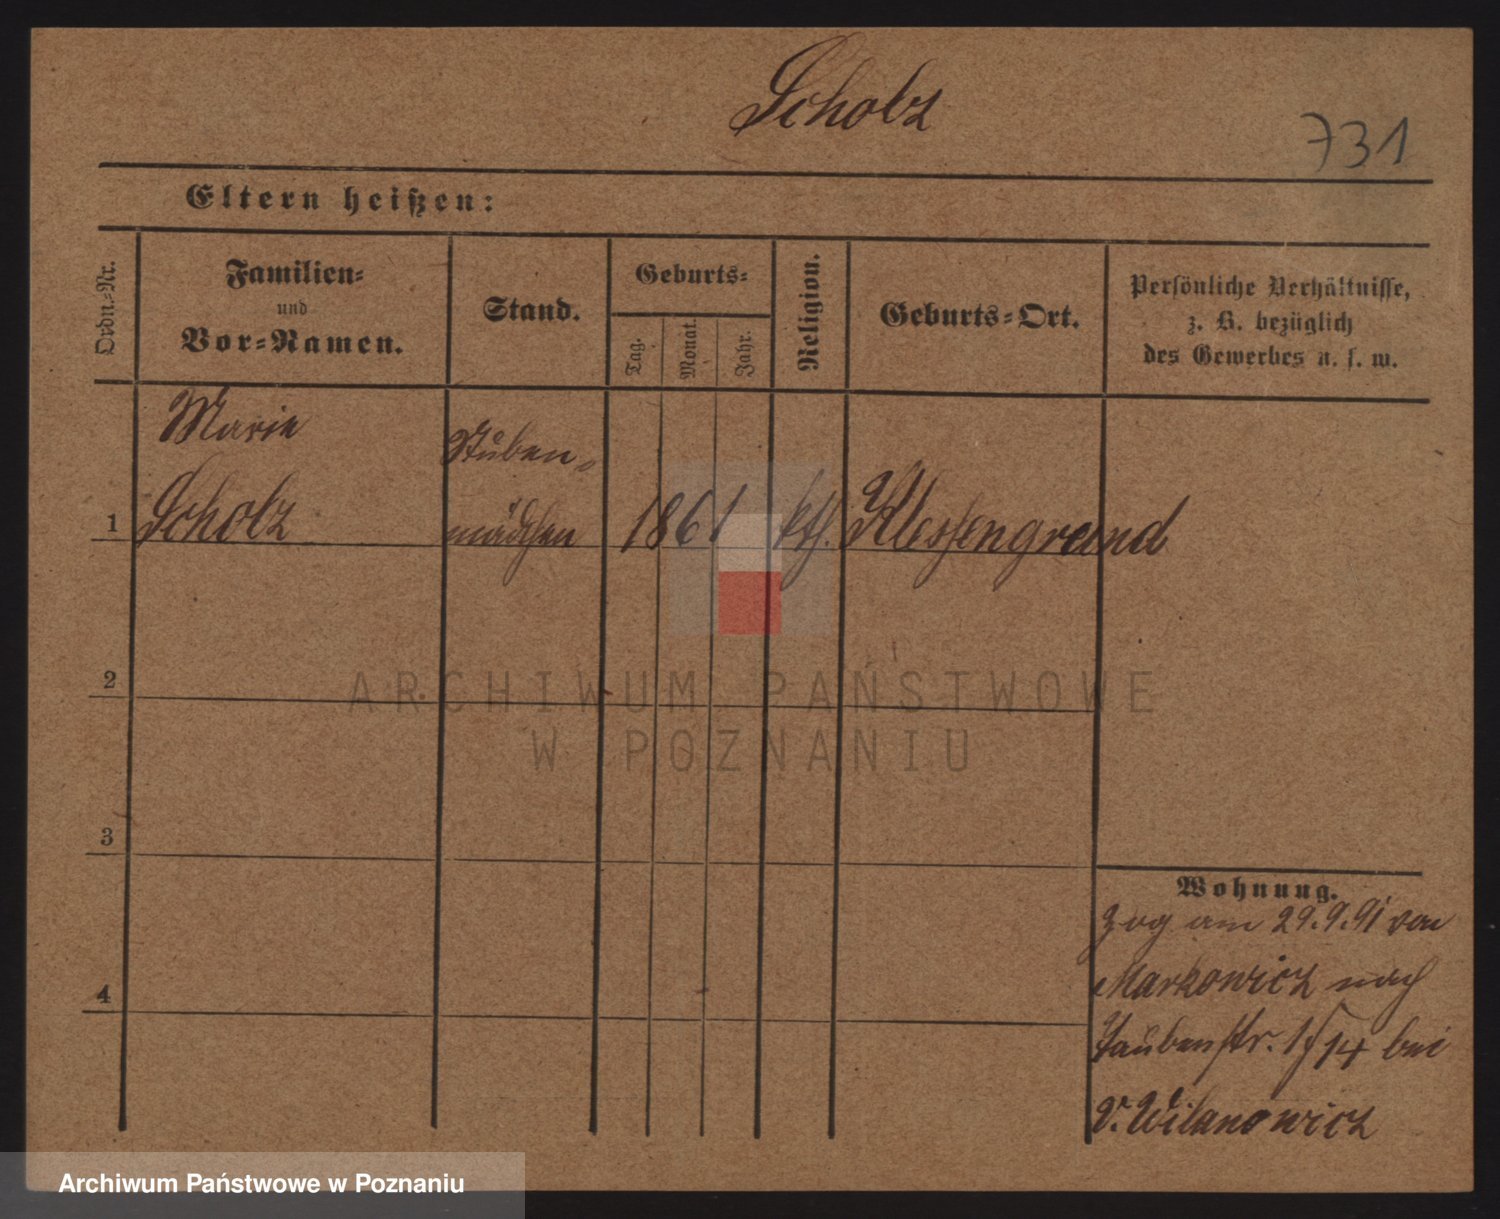 Scholz
731
Eltern heißen:
Ordn.-Nr.
Familien-
und
Vor-Namen.
Stand.
Geburts-
Tag.
Monat.
Jahr.
Religion.
Geburts-Ort.
Persönliche Verhältnisse,
z. B. bezüglich
des Gewerbes u. s. w.
1
Marie
Scholz
Stuben-
mädchen
1861
kth.
Klessengrund
2
3
4
Wohnung.
Zog am 29.9.91 von
Markowicz nach
Taubenstr. 1/14 bei
v. Wilanowicz
ARCHIWUM PAŃSTWOWE
W POZNANIU
Archiwum Państwowe w Poznaniu